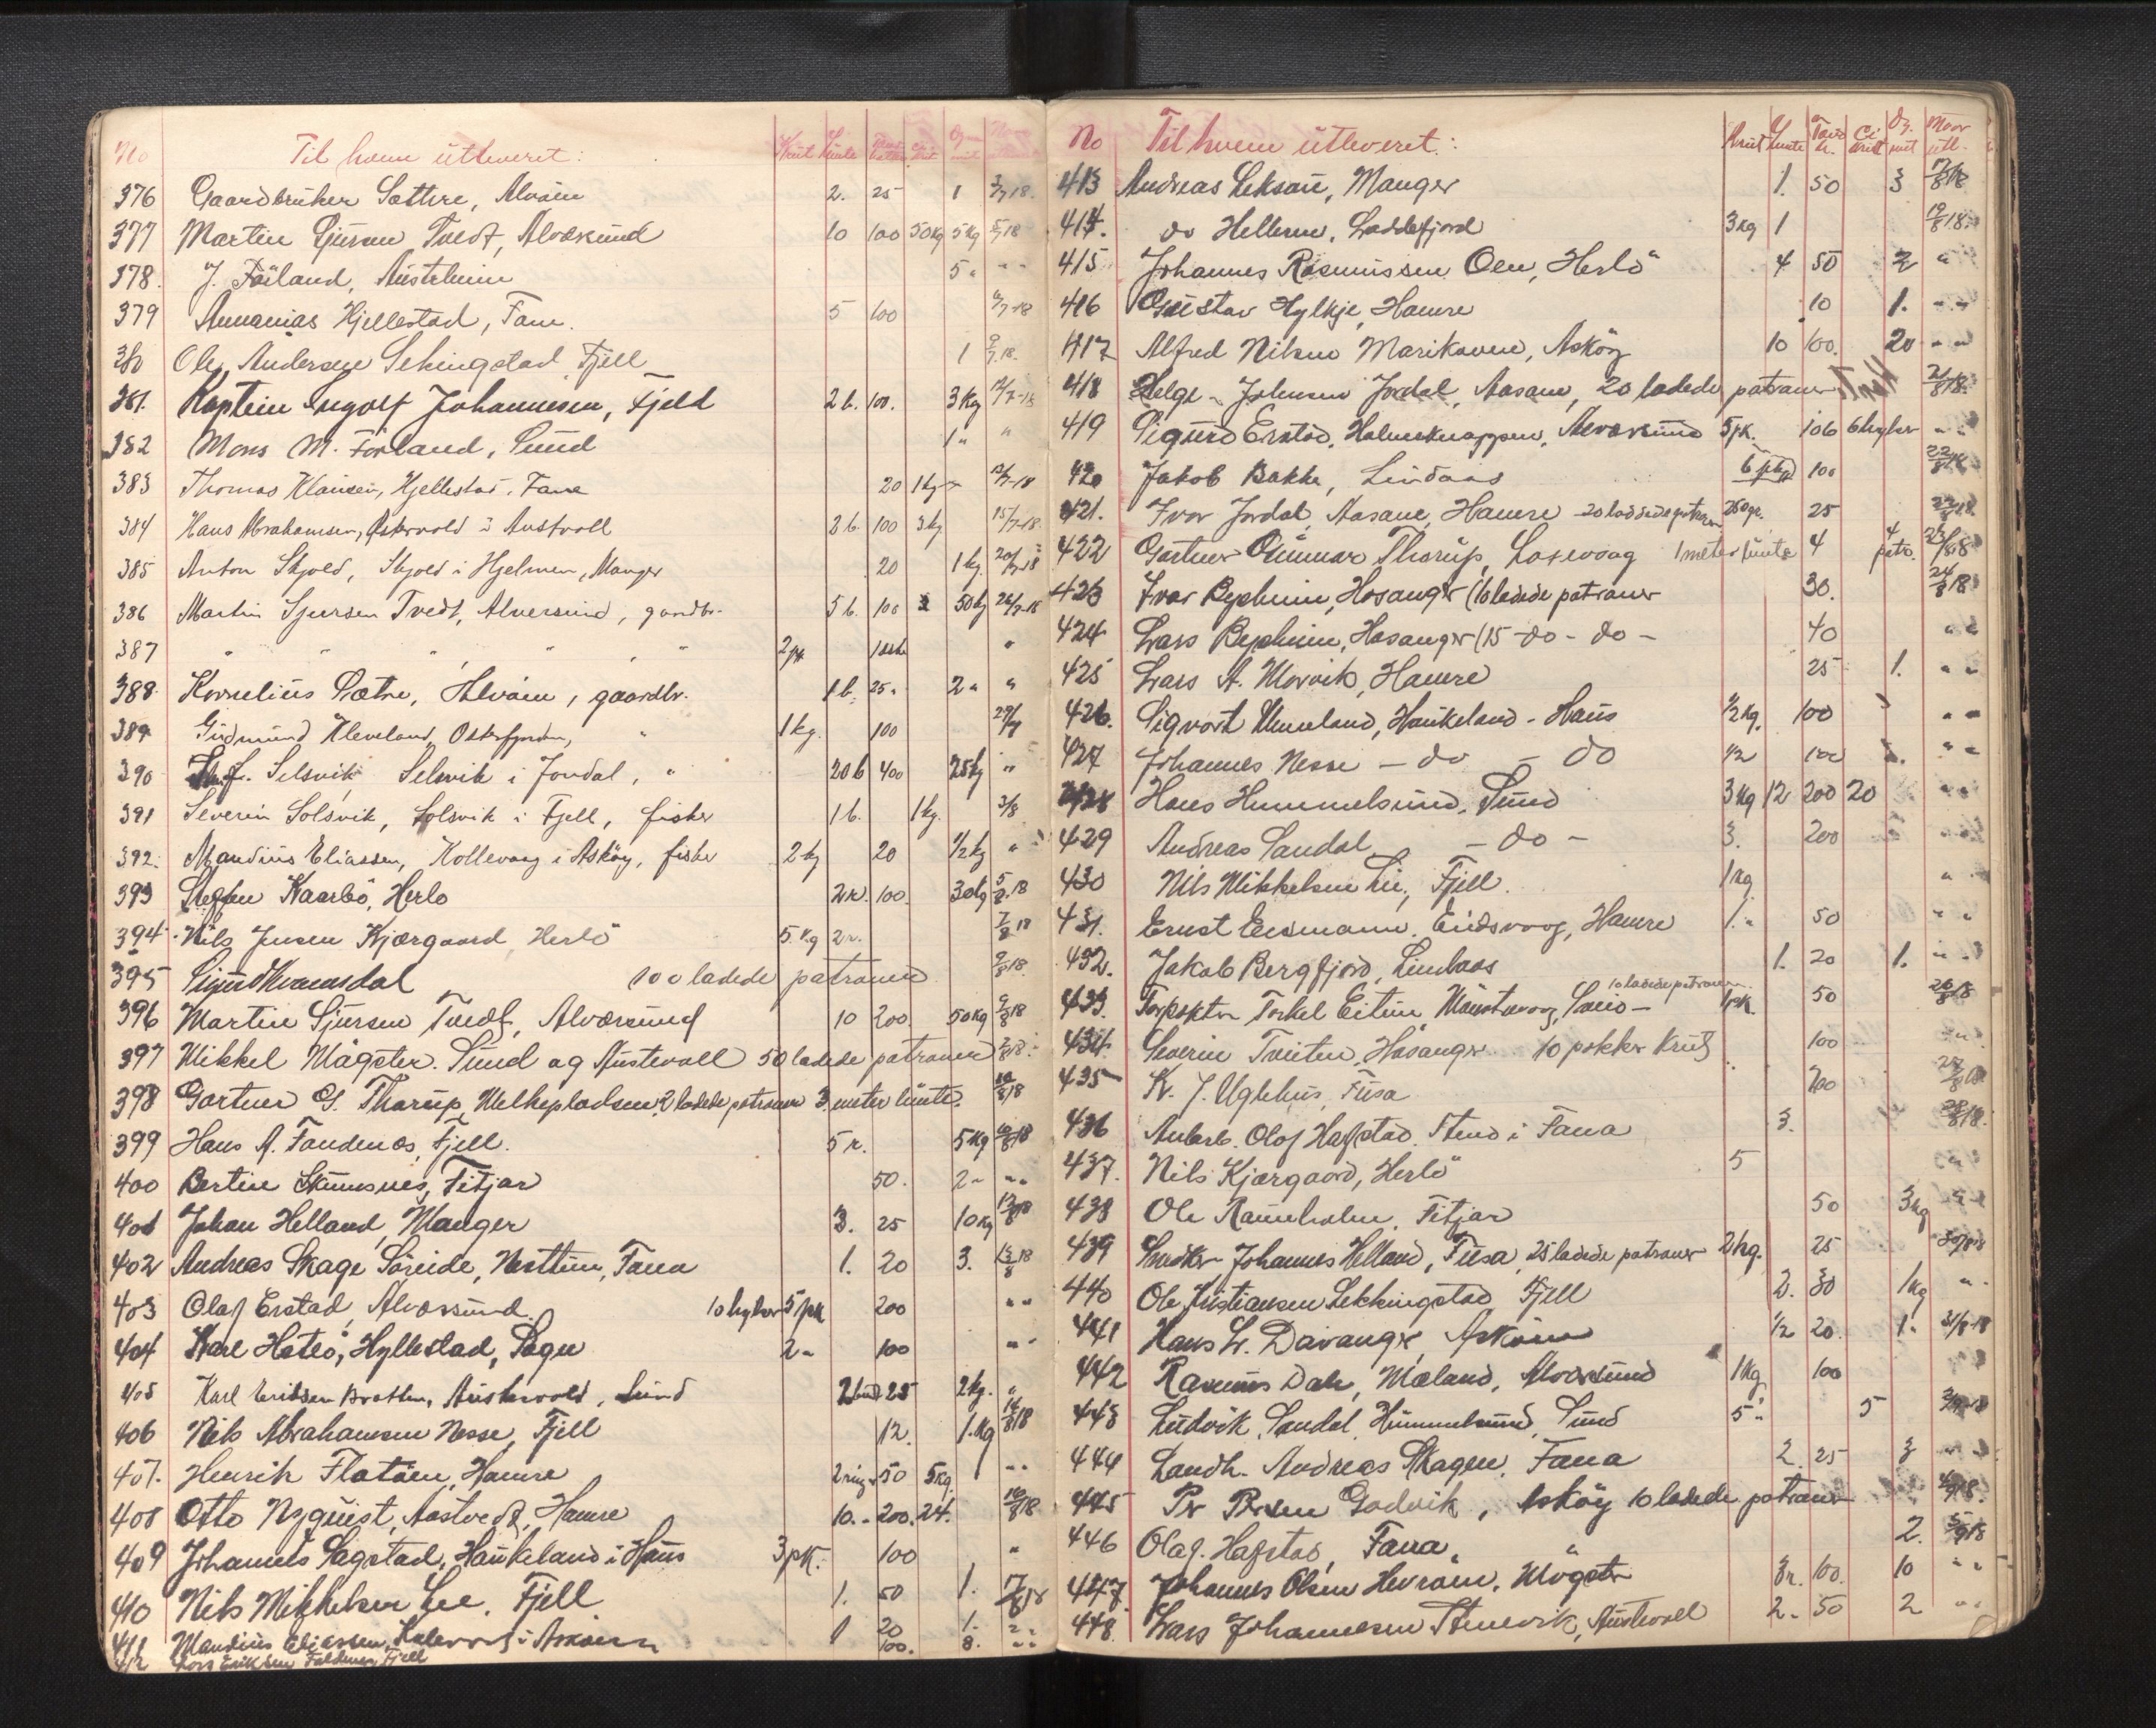 No Til hvem utleveret: Krut Lunte
376 Gaardbruker Sættre, Alvøen 2. 25 1 3/7 18.
377 Martin Sjursen Tvedt, Alværsund 10 100 50 kg 5 kg 5/7 18
378. J. Foiland, Austrheim 5 "
379 Annanias Hjellestad, Fane. 5 100 6/7-18
380 Ole Andersen Sekingstad Fjell 1 9/7.18.
381. Kaptein Ingolf Johannesen, Fjeld 2 b. 100. 3 kg 12/7-18
382 Mons M. Forland, Sund 1 " "
383 Thomas Klausen, Hjellestad, Fane 20 1 kg 12/7-18
384 Hans Abrahamsen, Østervold i Austvoll 2 b. 100 3 kg 15/7-18.
385 Anton Skjold, Skjold i Hjelmen, Manger 20 1 kg. 20/7-18
386 Martin Sjursen Tvedt, Alversund, gaardbr. 5 b. 100 50 kg 26/7-18
387 " " " " " " 2 pk "
388. Kornelius Sætre, Alvøen, gaardbr. 1 b. 25 " 2 " "
389 Gudmund Kleveland, Osterfjorden, " 1 kg. 100 29/7
390 Selsvik, Selsvik i Jondal, " 20 b 400 25 kg "
391 Severin Solsvik, Solsvik i Fjell, fisker 1 b. 1 kg. 3/8
392. Mandius Eliassen, Kollevaag i Askøy, fisker 2 kg 20 1/2 kg "
393 Steffen Kaarbø, Herlo 2 r. 100. 30 kg 5/8.18
394 Nils Jensen Kjærgaard Herlö 5 kg 2 r. 7/8 18
395 Sigurd Kvamsdal 100 ladede patroner 9/8 18.
396 Martin Sjursen Tvedt, Alværsund 10 200. 50 kg 9/8 18
397 Mikkel Møgster. Sund og Austevoll 50 ladede patroner
398 Gartner G. Tharup, Melkepladsen, 2 ladede patroner 3 meter lunte. 10/8 18
399 Hans A. Tandenes, Fjell. 5 r. 5 kg 10/8 18
400 Bertin Skumsnes, Fitjar 50. 2 " " "
401 Johan Helland, Manger 3. 25 10 kg 12/8 18
402 Andreas Skage Søreide, Nesttun, Fana 1. 20 3. 13/8 18
403 Olaf Erstad, Alværsund. 10 hylser 5 pk 200 " "
404 Karl Hateö, Hyllestad, Sogn 2 " 100 " "
405 Karl Eriksen Bratten, Austervold, Sund 25 2 kg. "
406 Nils Abrahamsen Nesse, Fjell 12. 1. kg 14/8 18
407. Henrik Flatöen, Hamre 2 ring. 50 5 kg. " "
408 Otto Nyquist, Aastvedt, Hamre 10. - 200. 24. 16/8 18
409 Johannes Sagstad, Haukeland i Haus 3 pk. 100 "
410 Nils Mikkelsen Lie. Fjell 1. 50 1. 17/8 18
411 Mandius Eliassen, Kolevaag i Askøen 1 20 1. " "
412 Lars Eriksen Fjell 100. 8. " "
No Til hvem utleveret: Krut Lunte
413 Andreas Leksau, Manger 1. 50 3 17/8 18
414. do Hellesen, Laddefjord 3 kg 1 19/8 18.
415 Johannes Rasmussen Oen, Herlö 4 50 2 "
416 Gustav Hylkje, Hamre 10 1. " "
417 Alfred Nilsen Marikoven, Askøy 10 100. 20 " "
418 Helge Johnsen Jordal, Aasane, 20 ladede patroner 21/8 18.
419 Sigurd Erstad, Holmeknappen, Alværsund 5 pk. 100 6 hylser " "
420 Jakob Bakke, Lindaas 6 pkg 100 22/8 18
421. Ivar Jordal, Aasane, Hamre - 20 laddede patroner 250 gr. 25 23/8 18
422 Gartner Gunnar Tharup, Laxevaag 1 meter lunte 4 4 patr. 23/8 18
423 Ivar Bysheim, Hosanger (16 ladede patroner 30. 24/8 18
424 Lars Bysheim, Hosanger (15 - do - do - 40 " "
425 Lars A. Morvik, Hamre 25 1. " "
426. Sigvart Unneland, Haukeland - Haus 1/2 kg. 100 " "
427 Johannes Nesse - do - do 1/2 100 " "
428 Hans Hummelsund, Sund 3 kg 12 200 20 " "
429 Andreas Sandal - do - 3. 200 " "
430 Nils Mikkelsen Lie, Fjell. 1 kg "
431. Ernst Eismann, Eidsvaag, Hamre 1. " 50 " "
432. Jakob Bergfjord, Lindaas 1. 20 1. " "
433. Torkel Eitun Sund - 10 ladede patroner 1 pk. 50 26/8 18
434. Severin Tveiten, Hosanger 10 pakker krut 100 " "
435 K. J. Uglehus, Fusa 200 27/8 18
436 Anlarb. Olaf Hafstad. Stend i Fana 3. 28/8 18.
437. Nils Kjærgaard, Herlö 5 " "
438 Ole Rauneholm, Fitjar 50 3 kg " "
439 Snedker Johannes Helland, Fusa, 25 ladede patroner 2 kg. 25 30/8 18
440 Ole Kristiansen Sekkingstad, Fjell 2. 30 1 kg " "
441 Hans L. Davanger, Askøen 1/2 20. 1 " 31/8-18
442 Rasmus Dale, Mæland, Alværsund 1 kg 100 " "
443 Ludvik Sandal, Hummelsund, Sund 5 " 5 2/9-18
444 Landh. Andreas Skagen. Fana 2. 25 3 " "
445 Per Persen Godvik, Askøy 10 ladede patroner 4/9 18.
446 Olaf. Hafstad, Fana 2. 5/9 18
447. Johannes Olsen Hevrøen, Møgster 3 r. 100. 10 " "
448. Lars Johannesen Stenevik, Austevoll 2. - 50 2 " "